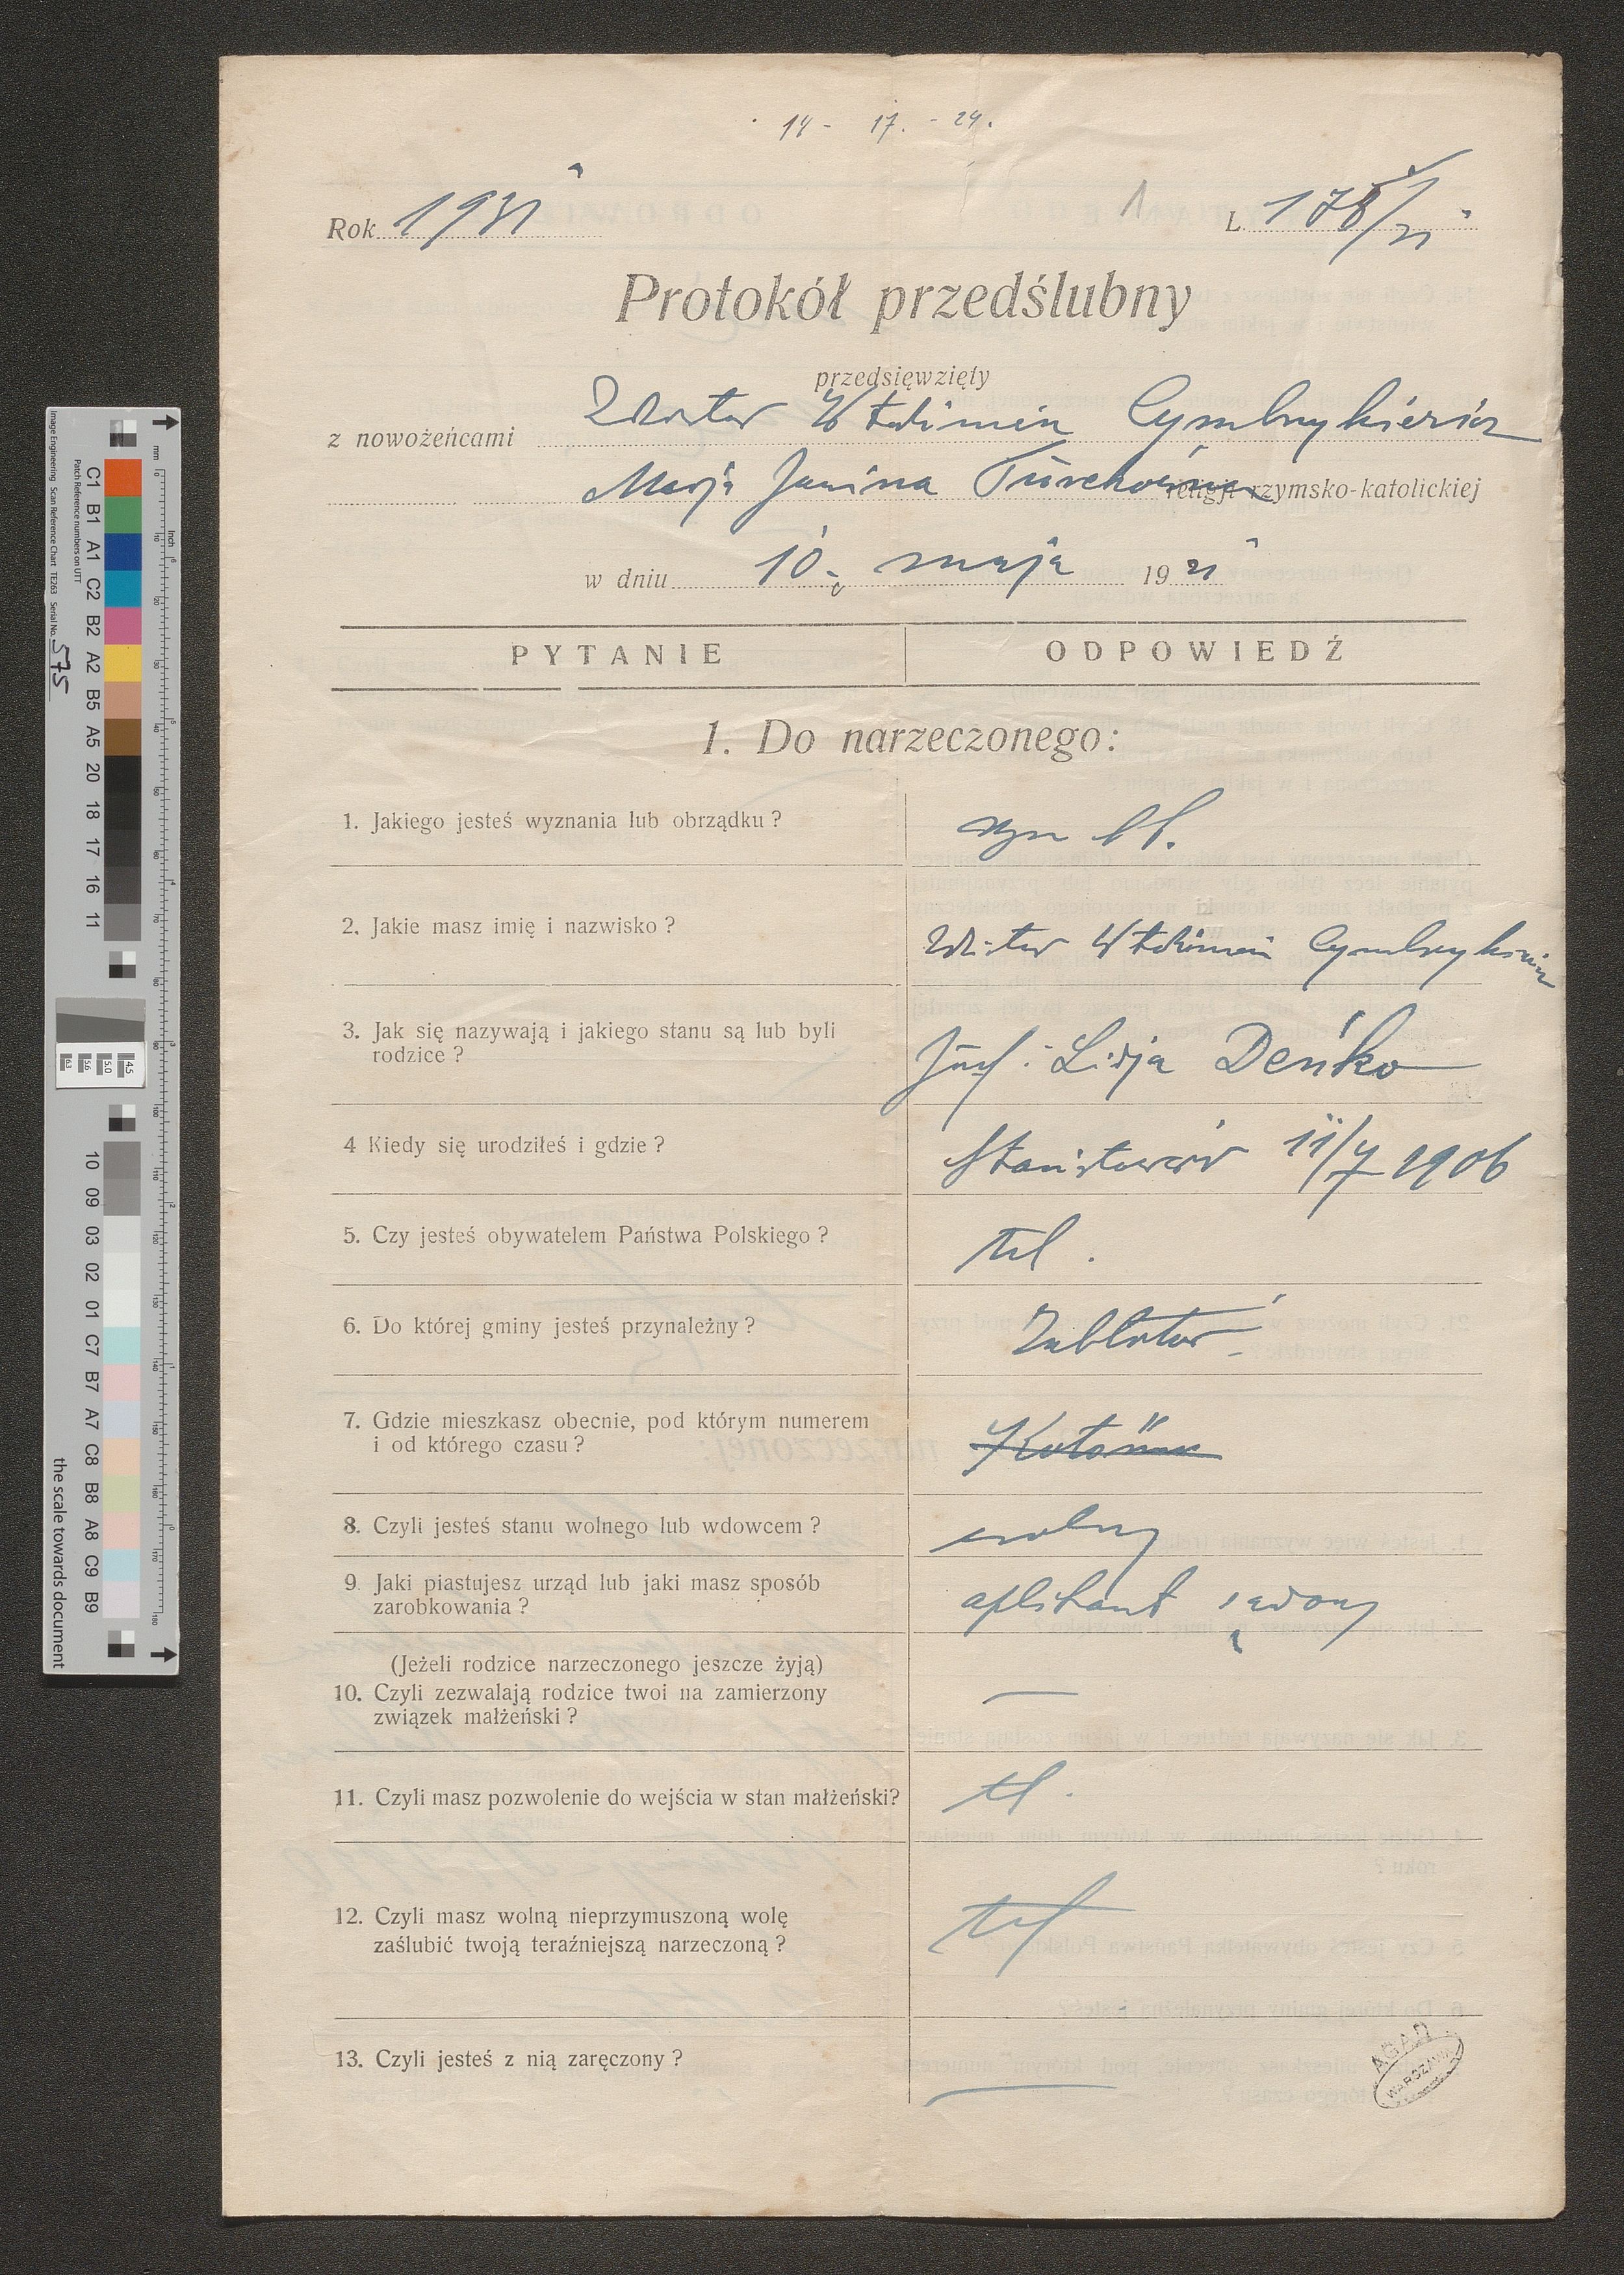 14 - 17. - 24.
Rok 1931 1 L. 178/31
Protokół przedślubny
przedsięwzięty
z nowożeńcami Wiktor Włodzimierz Cymbrykiewicz
Marja Janina religji rzymsko-katolickiej
w dniu 10. maja 1931
PYTANIE ODPOWIEDŹ
1. Do narzeczonego:
1. Jakiego jesteś wyznania lub obrządku?
2. Jakie masz imię i nazwisko? Wiktor Włodzimierz Cymbrykiewicz
3. Jak się nazywają i jakiego stanu są lub byli Józef i Lidja Deńko
rodzice?
4 Kiedy się urodziłeś i gdzie? Stanisławów 11/7 1906
5. Czy jesteś obywatelem Państwa Polskiego? tak.
6. Do której gminy jesteś przynależny? Zabłotów
7. Gdzie mieszkasz obecnie, pod którym numerem
i od którego czasu?
8. Czyli jesteś stanu wolnego lub wdowcem? wolny
9. Jaki piastujesz urząd lub jaki masz sposób aplikant sądowy
zarobkowania?
(Jeżeli rodzice narzeczonego jeszcze żyją)
10. Czyli zezwalają rodzice twoi na zamierzony —
związek małżeński?
11. Czyli masz pozwolenie do wejścia w stan małżeński? tak.
12. Czyli masz wolną nieprzymuszoną wolę tak
zaślubić twoją teraźniejszą narzeczoną?
13. Czyli jesteś z nią zaręczony? —
AGAD
WARSZAWA
Image Engineering Scan Reference Chart TE263 Serial No. 575
Patch Reference numbers on UTT
C1 B1 A1 C2 B2 A2 B5 A5 20 18 17 16 11
10 09 03 02 01 C7 B7 A7 C8 B8 A8 C9 B9
the scale towards document